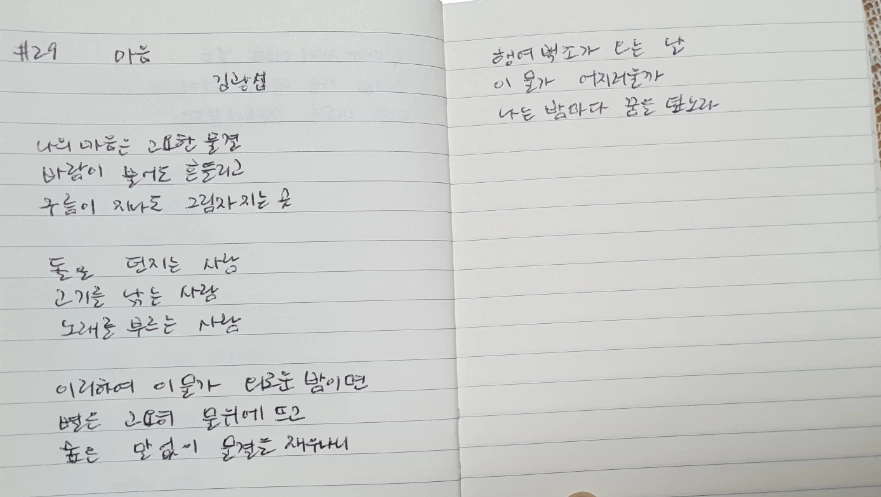 #29 마음
김광섭
나의 마음은 고요한 물결
바람이 불어도 흔들리고
구름이 지나도 그림자 지는 곳
돌을 던지는 사람
고기를 낚는 사람
노래를 부르는 사람
이리하여 이 물가 외로운 밤이면
별은 고요히 물위에 뜨고
숲은 말없이 물결을 재우나니
행여 백조가 오는 날
이 물가 어지러울까
나는 밤마다 꿈을 덮노라